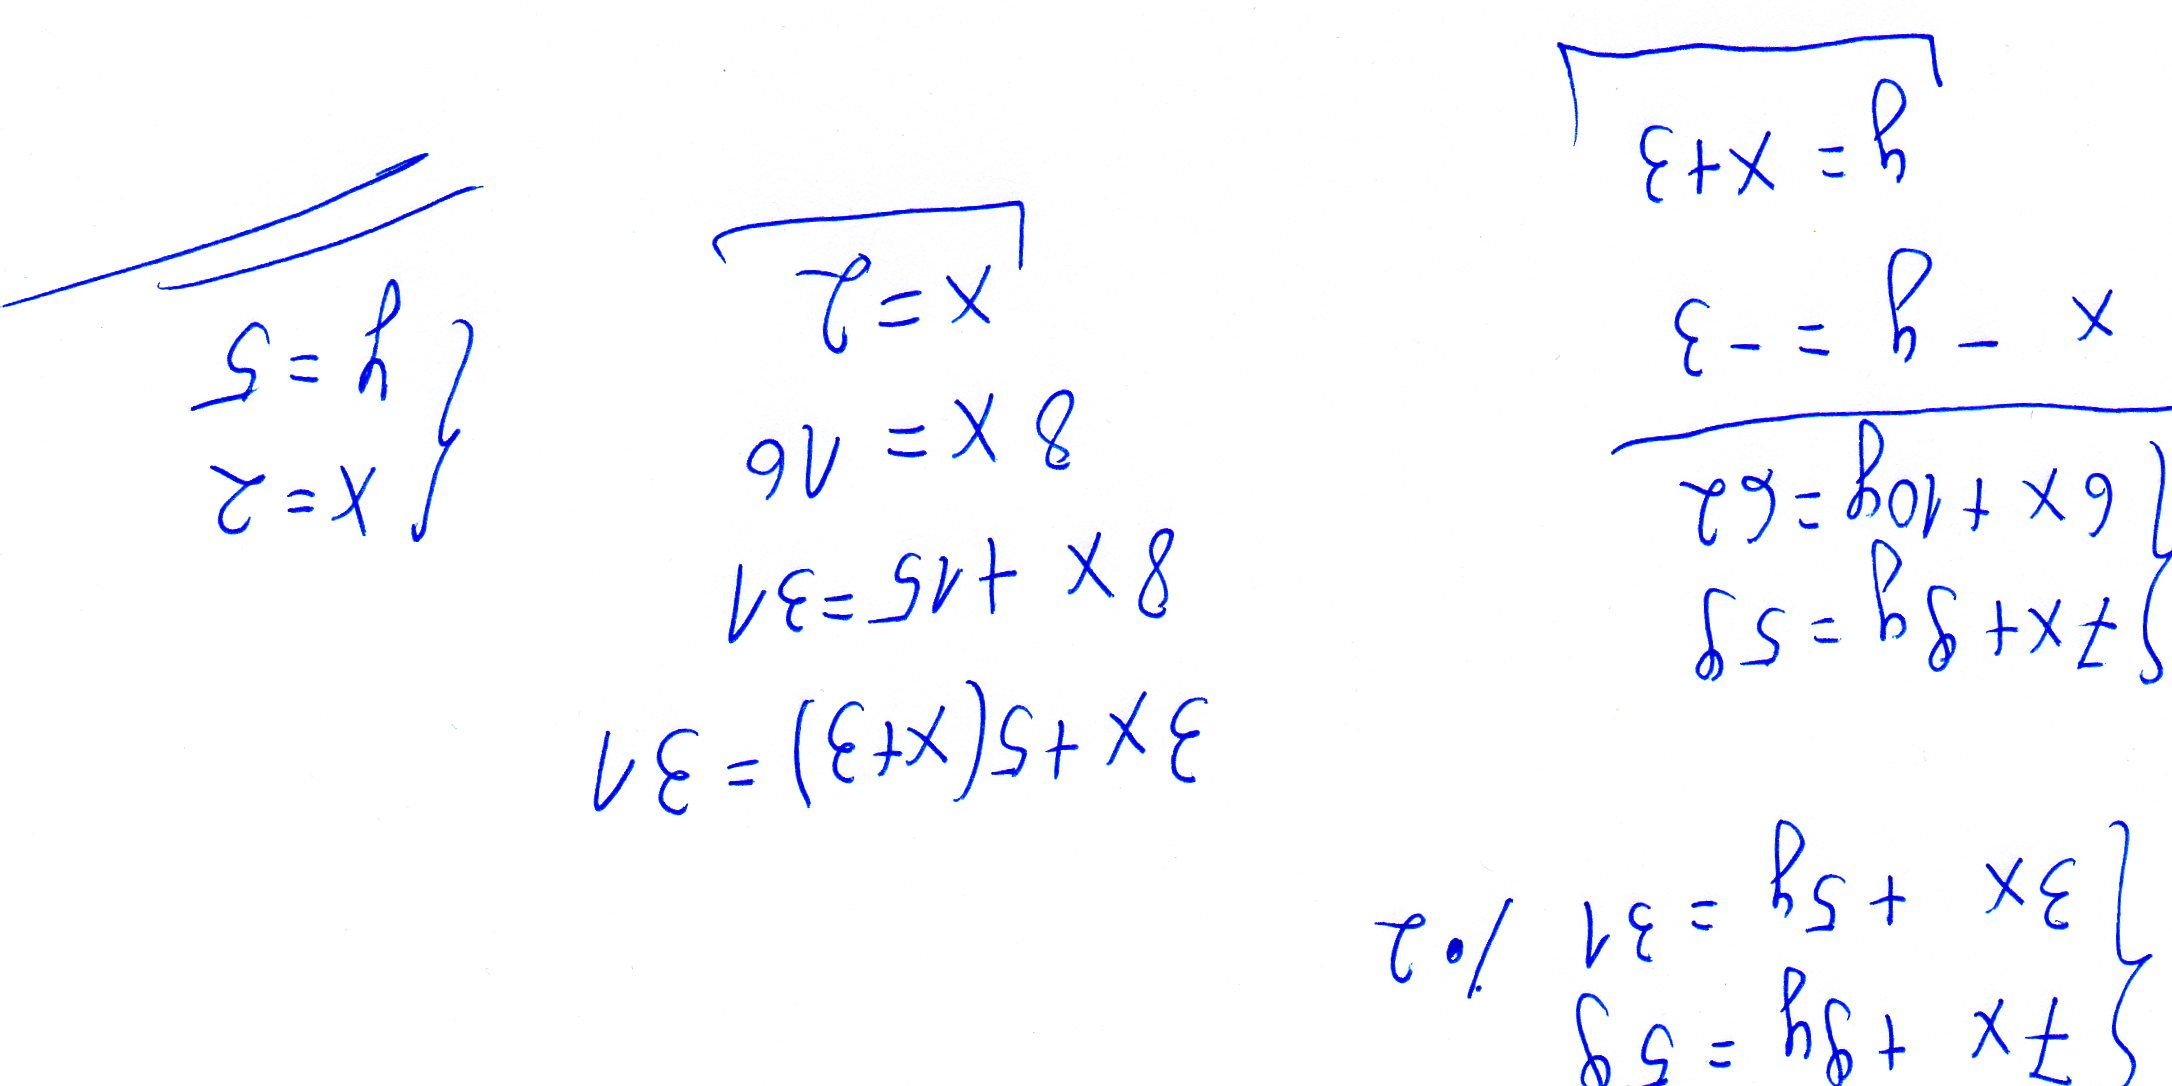 7x + 9y = 59
3x + 5y = 31 /•2
7x + 9y = 59
6x + 10y = 62
x - y = -3
y = x+3
3x + 5(x+3) = 31
8x + 15 = 31
8x = 16
x = 2
x = 2
y = 5